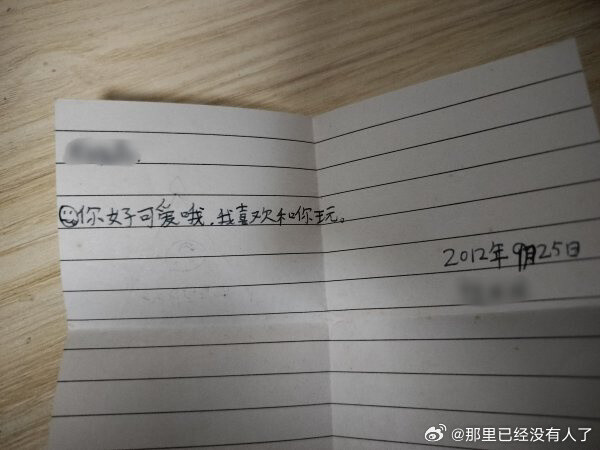 你好可爱哦,我喜欢和你玩。
2012年9月25日
@那里已经没有人了